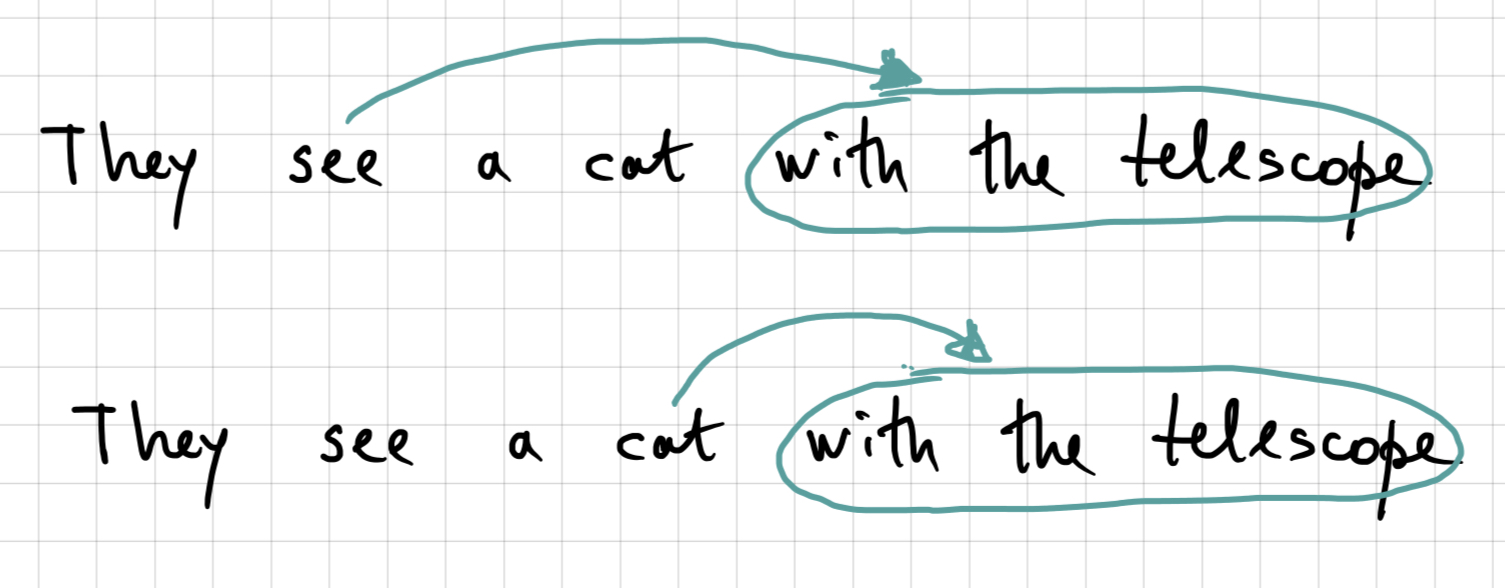 They see a cat with the telescope
They see a cat with the telescope